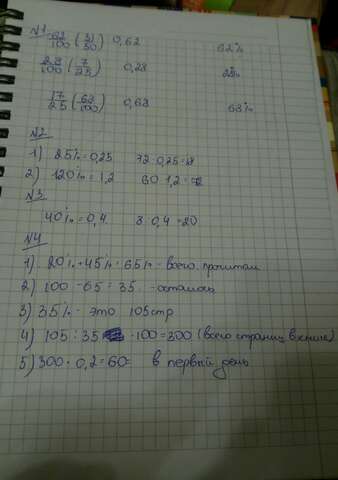 №1 62/100 (31/50) 0,62 62%
28/100 (7/25) 0,28 28%
17/25 (68/100) 0,68 68%
№2
1) 25% = 0,25 72·0,25=18
2) 120% = 1,2 60·1,2=72
№3
40% = 0,4 8:0,4=20
№4
1) 20%+45%=65% - всего прочитали
2) 100-65=35 - осталось
3) 35% - это 105стр
4) 105:35·100=300 (всего страниц в книге)
5) 300·0,2=60= в первый день